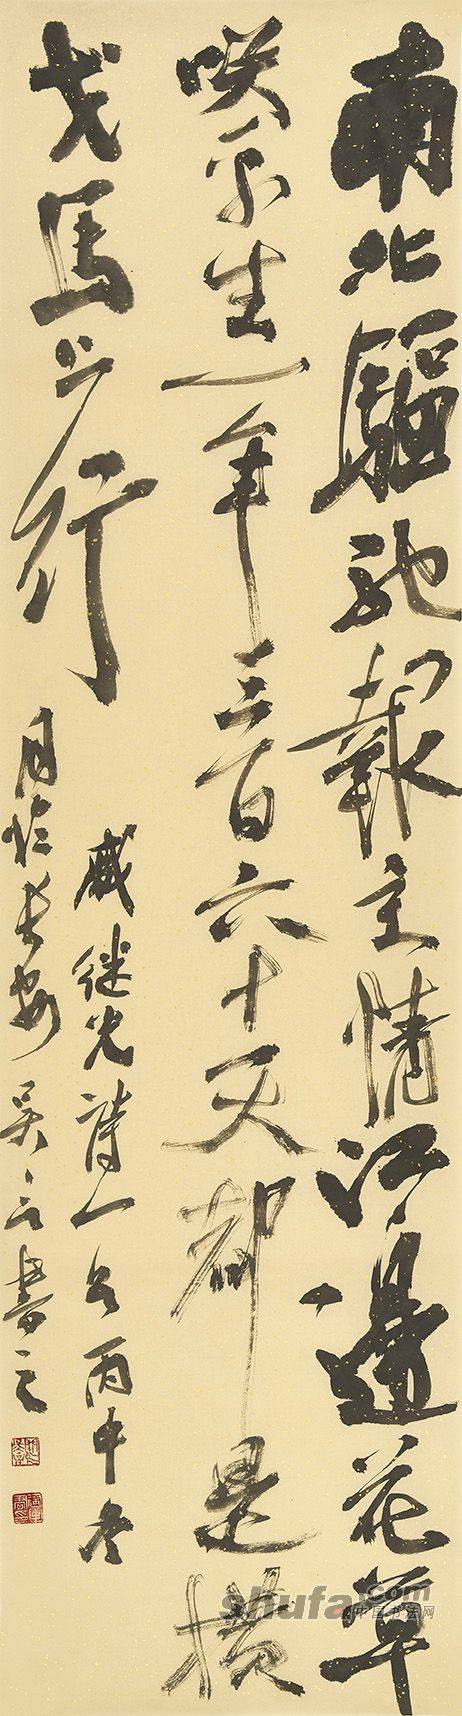 南北驅馳報主情江邊花草
咲平生一年三百六十天都是橫
戈馬上行
戚继光詩一首丙申冬
月於长安吴言書之
shufa.com
中国书法网